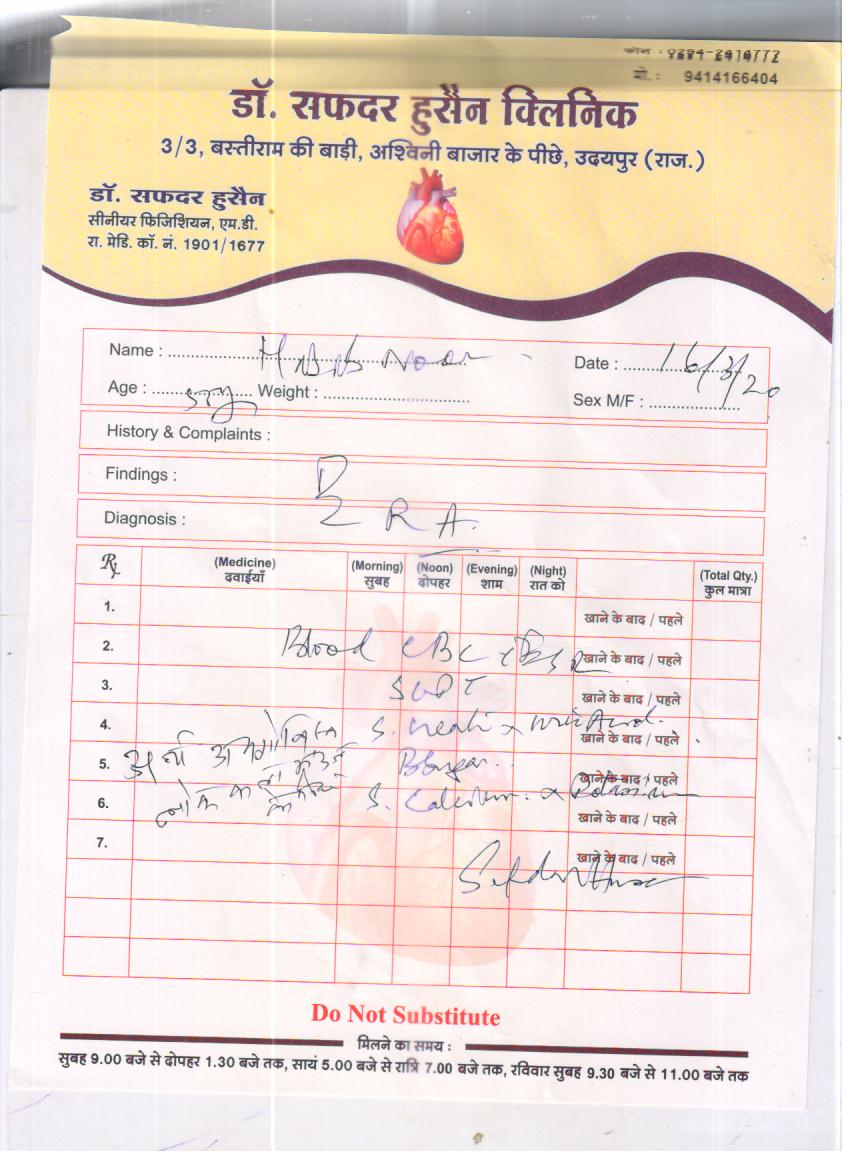 फोन : 0294-2414772
मो. : 9414166404
डॉ. सफदर हुसैन क्लिनिक
3/3, बस्तीराम की बाड़ी, अश्विनी बाजार के पीछे, उदयपुर (राज.)
डॉ. सफदर हुसैन
सीनीयर फिजिशियन, एम.डी.
रा. मेडि. कॉ. नं. 1901/1677
Name : Noor Date : 16/3/20
Age : Weight : Sex M/F :
History & Complaints :
Findings :
Diagnosis : RA.
Rx (Medicine) (Morning) (Noon) (Evening) (Night) (Total Qty.)
दवाईयाँ सुबह दोपहर शाम रात को कुल मात्रा
1. खाने के बाद / पहले
2. Blood CBC ESR खाने के बाद / पहले
3. SGPT खाने के बाद / पहले
4. S. Uric Acid. खाने के बाद / पहले
5. खाने के बाद / पहले
6. S. Calcium. खाने के बाद / पहले
7. खाने के बाद / पहले
Do Not Substitute
मिलने का समय :
सुबह 9.00 बजे से दोपहर 1.30 बजे तक, सायं 5.00 बजे से रात्रि 7.00 बजे तक, रविवार सुबह 9.30 बजे से 11.00 बजे तक